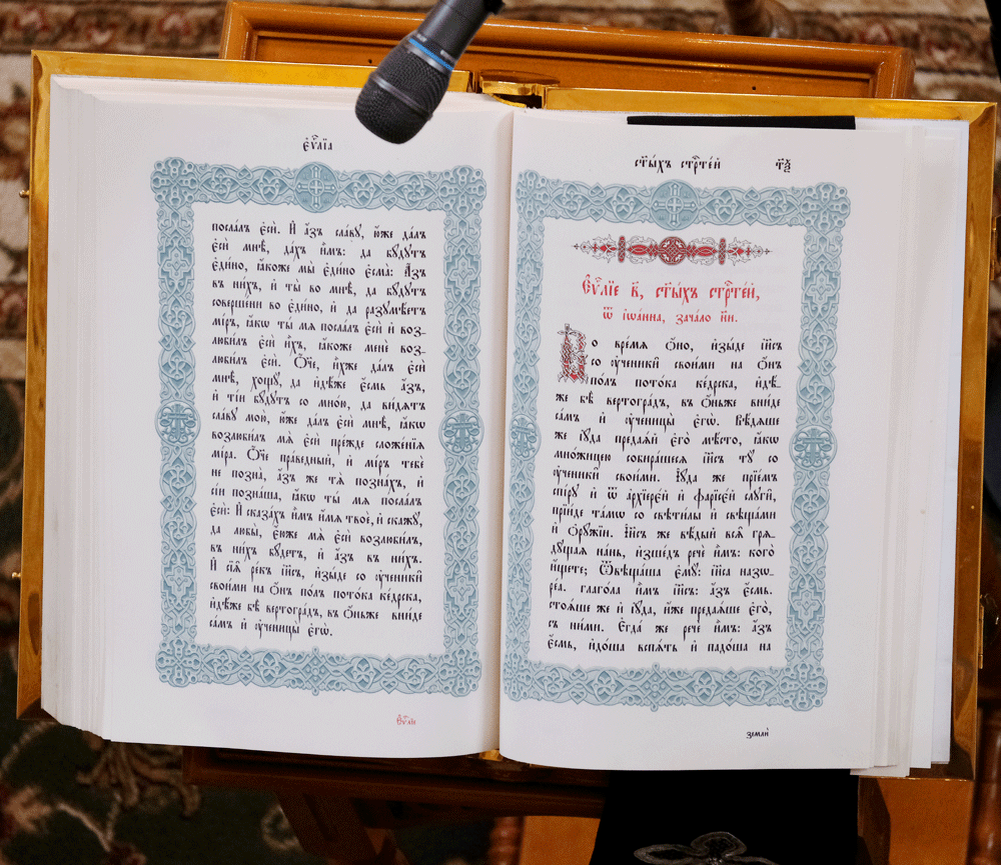 є҆ѵⷢ҇лїа
посла́лъ є҆сѝ. И҆ а҆́зъ сла́вꙋ, ю҆́же да́лъ
є҆сѝ мнѣ̀, да́хъ и҆̀мъ: да бꙋ́дꙋтъ
є҆ди́но, ꙗ҆́коже мы̀ є҆ди́но є҆смы̀: А҆́зъ
въ ни́хъ, и҆ ты̀ во мнѣ̀, да бꙋ́дꙋтъ
соверше́ни во є҆ди́но, и҆ да разꙋмѣ́етъ
мі́ръ, ꙗ҆́кѡ ты̀ мѧ̀ посла́лъ є҆сѝ и҆ воз_
люби́лъ є҆сѝ и҆̀хъ, ꙗ҆́коже менѐ воз_
люби́лъ є҆сѝ. Ѻ҆́ч҃е, и҆̀хже да́лъ є҆сѝ
мнѣ̀, хощꙋ̀, да и҆дѣ́же є҆́смь а҆́зъ,
и҆ ті́и бꙋ́дꙋтъ со мно́ю, да ви́дѧтъ
сла́вꙋ мою̀, ю҆́же да́лъ є҆сѝ мнѣ̀, ꙗ҆́кѡ
возлюби́лъ мѧ̀ є҆сѝ пре́жде сложе́нїѧ
мі́ра. Ѻ҆́ч҃е пра́ведный, и҆ мі́ръ тебѐ
не позна̀, а҆́зъ же тѧ̀ позна́хъ, и҆
сі́и позна́ша, ꙗ҆́кѡ ты̀ мѧ̀ посла́лъ
є҆сѝ: И҆ сказа́хъ и҆̀мъ и҆́мѧ твоѐ, и҆ скажꙋ̀,
да любы̀, є҆́юже мѧ̀ є҆сѝ возлюби́лъ,
въ ни́хъ бꙋ́детъ, и҆ а҆́зъ въ ни́хъ.
И҆ сїѧ̑ ре́къ і҆и҃съ, и҆зы́де со ᲂу҆ченикѝ
свои́ми на ѻ҆́нъ по́лъ пото́ка ке́дрска,
и҆дѣ́же бѣ̀ вертогра́дъ, въ ѻ҆́ньже вни́де
са́мъ и҆ ᲂу҆ченицы̀ є҆гѡ̀.
є҆ѵⷢ҇лїе
ст҃ы́хъ стрⷭ҇те́й
тч҃ѯ
Є҆ѵⷢ҇лїе в҃, ст҃ы́хъ стрⷭ҇те́й,
ѿ і҆ѡа́нна, зача́ло н҃и.
Во вре́мѧ ѻ҆́но, и҆зы́де і҆и҃съ
со ᲂу҆ченикѝ свои́ми на ѻ҆́нъ
по́лъ пото́ка ке́дрска, и҆дѣ́_
же бѣ̀ вертогра́дъ, въ ѻ҆́ньже вни́де
са́мъ и҆ ᲂу҆ченицы̀ є҆гѡ̀. Вѣ́дѧше
же і҆ꙋ́да предаѧ́й є҆го̀ мѣ́сто, ꙗ҆́кѡ
мно́жицею собира́шесѧ і҆и҃съ тꙋ̀ со
ᲂу҆ченикѝ свои́ми. І҆ꙋ́да же прїе́мъ
спі́рꙋ и҆ ѿ а҆рхїерє́й и҆ фарїсє́й слꙋгѝ,
прїи́де та́мѡ со свѣти́лы и҆ свѣща́ми
и҆ ѻ҆рꙋ́жїи. І҆и҃съ же вѣ́дый всѧ̑ грѧ_
дꙋ̑щаѧ на́нь, и҆зше́дъ речѐ и҆̀мъ: кого̀
и҆́щете; Ѿвѣща́ша є҆мꙋ̀: і҆и҃са назѡ_
ре́а. глаго́ла и҆̀мъ і҆и҃съ: а҆́зъ є҆́смь.
стоѧ́ше же и҆ і҆ꙋ́да, и҆́же предаѧ́ше є҆го̀,
съ ни́ми. Є҆гда́ же речѐ и҆̀мъ: а҆́зъ
є҆́смь, и҆до́ша вспѧ́ть и҆ падо́ша на
землѝ